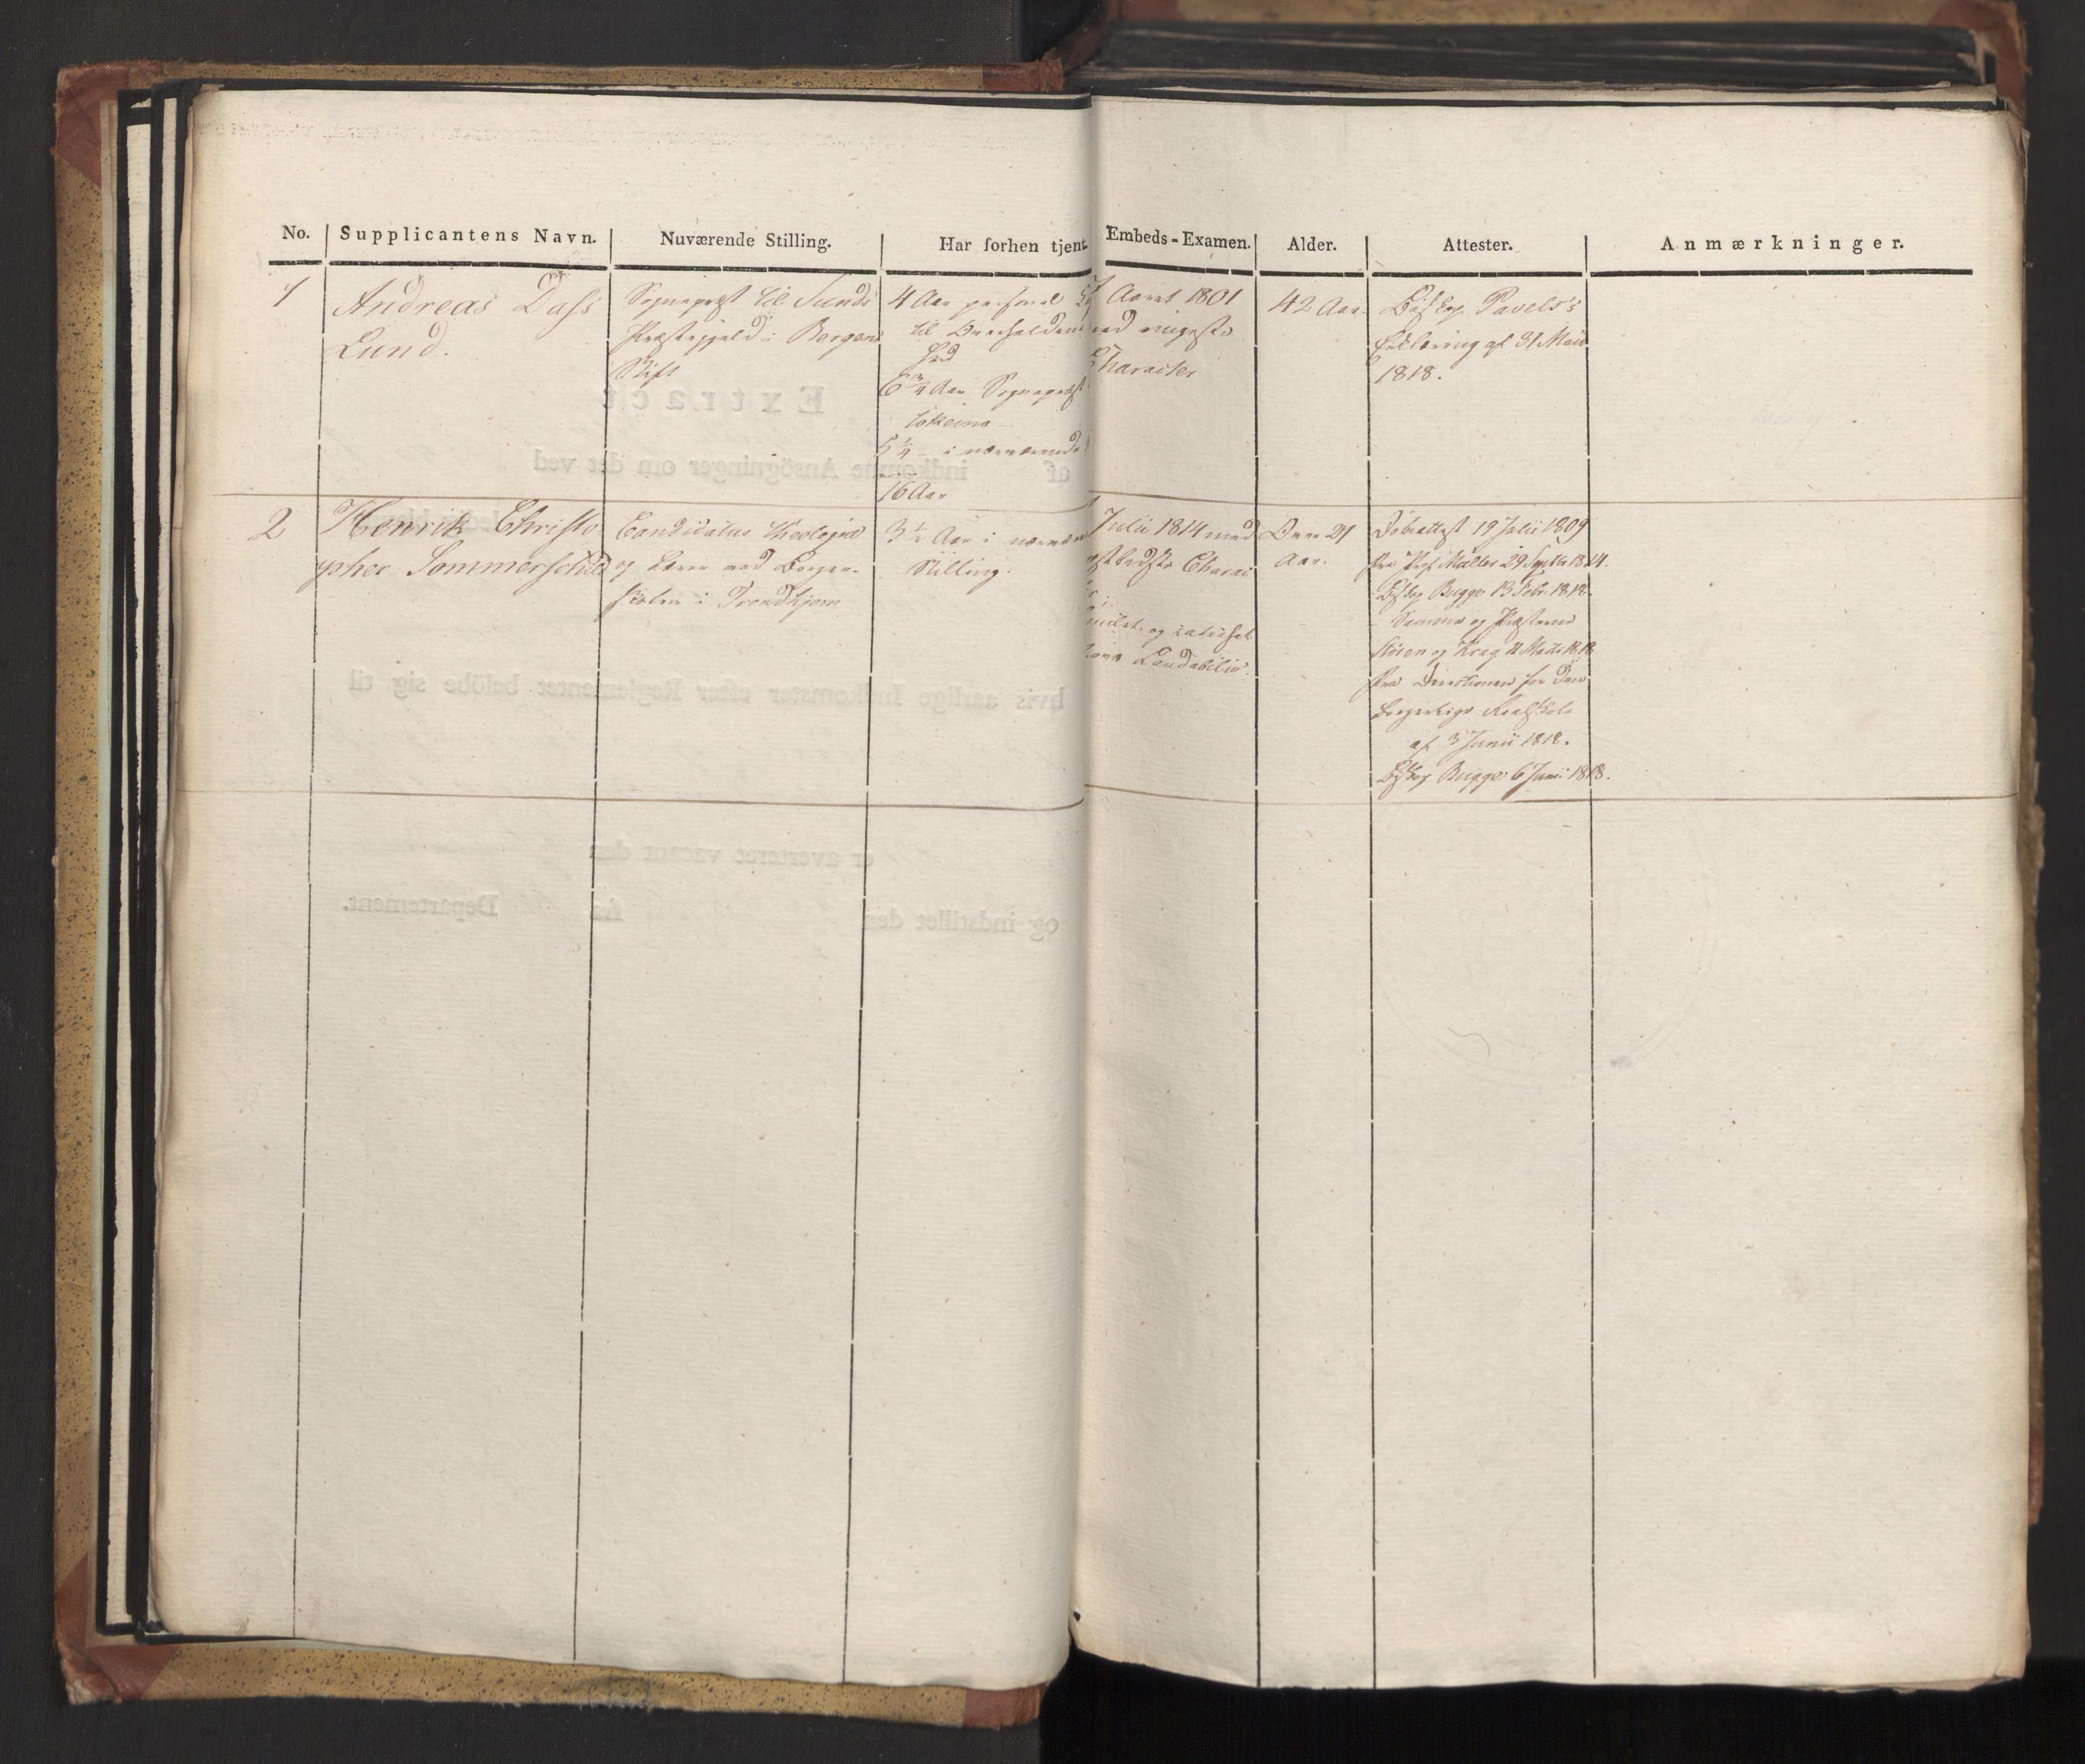 No.
Supplicantens Navn.
Nuværende Stilling.
Har forhen tjent.
Embeds-Examen.
Alder.
Attester.
Anmærkninger.
1
Andreas Dass
Lund.
Sognepræst til Sunds
Præstegjeld i Bergens
Stift
4 Aar personel
til Overhaldens
6 3/4 Aar Sognepræst
5 1/4 – i nærværende
16 Aar
I Aaret 1801
med ringeste
Character
42 Aar
Biskop Pavels's
Erklæring af 31 Maii
1818.
2
Henrik Christo
pher Sommerschild
Candidatus theologiæ
og Lærer ved Borger-
skolen i Trondhjem
3 1/2 Aar i nærvæ
Stilling.
Julii 1814 med
Charac
og catechet
Laudabilis
Over 27
Aar.
Døbeattest 19 Julii 1809
fra Prof. Møller 29 Septbr 1814.
Biskop Bugge 13 Febr. 1818.
Samme og Præsterne
og Krag 11 Marts 1818
fra Directionen for den
borgerlige Realskole
af 3 Junii 1818.
Biskop Bugge 6 Junii 1818.
Extract
af indkomne Ansögninger om det ved
hvis aarlige Indkomster efter Reglementet belöbe sig til
er averteret vacant den
og indstillet den
fra
Departement.